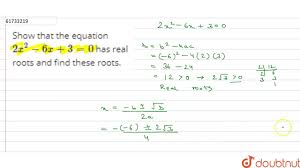 61733219
Show that the equation
2x² - 6x + 3 = 0 has real
roots and find these roots.
2x² - 6x + 3 = 0
D = b² - 4ac
= (-6)² - 4(2)(3)
= 36 - 24
= 12 > 0 → 2√3 > 0
Real roots
x = -b ± √D
2a
= -(-6) ± 2√3
4
doubtnut